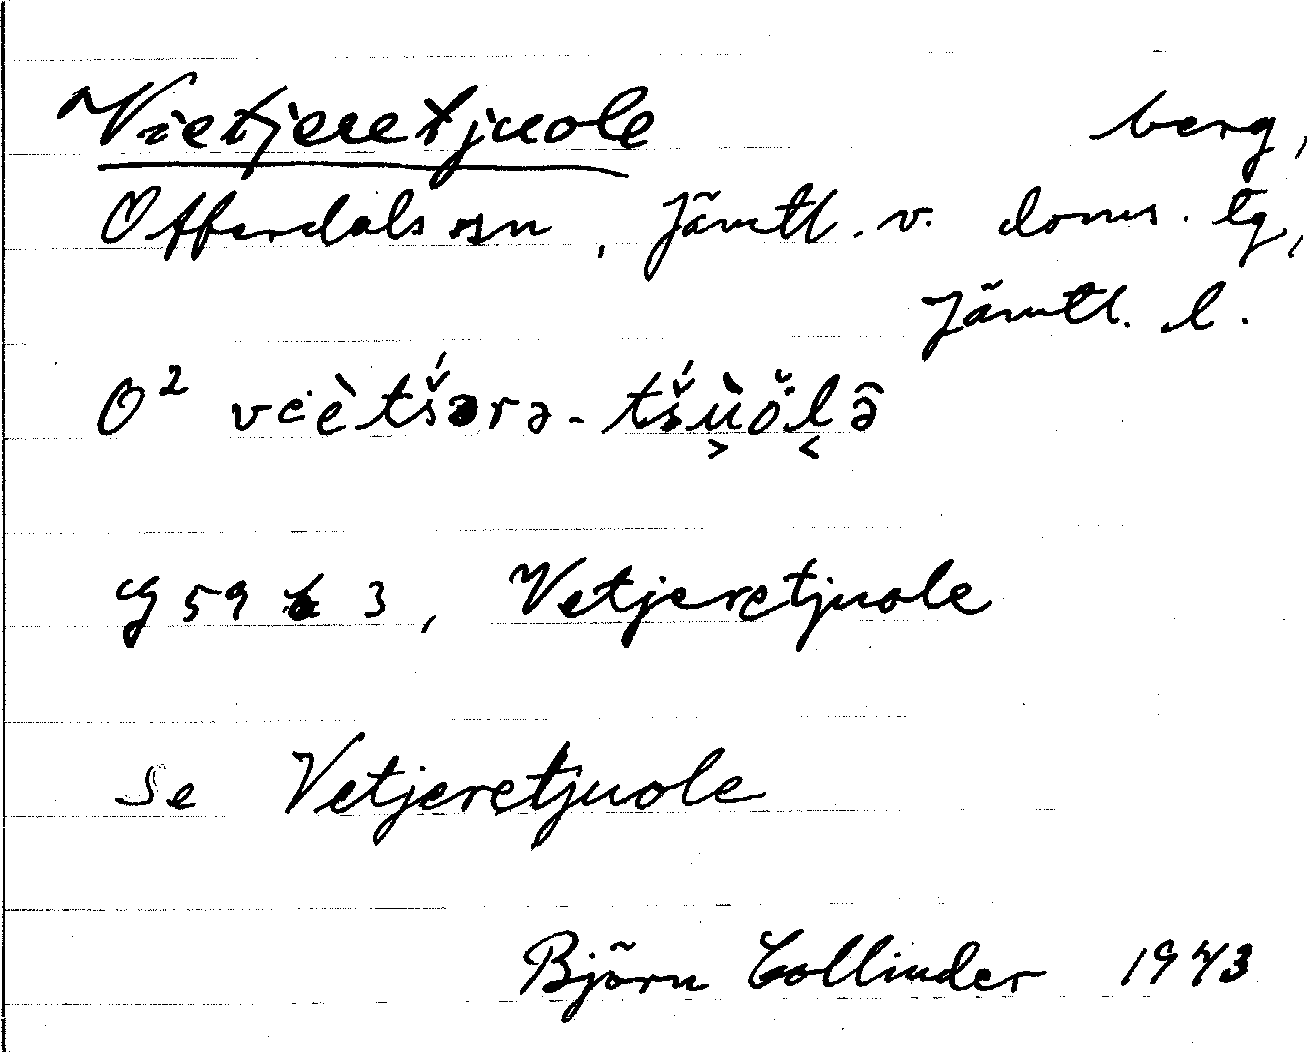 Vietjeretjuole berg,
Offerdals sn, Jämtl. v. doms. tg,
Jämtl. l.
O² vċètš́ərə-tš́ùŏlə̑
G 59 b 3, Vetjeretjuole
Se Vetjeretjuole
Björn Collinder 1943